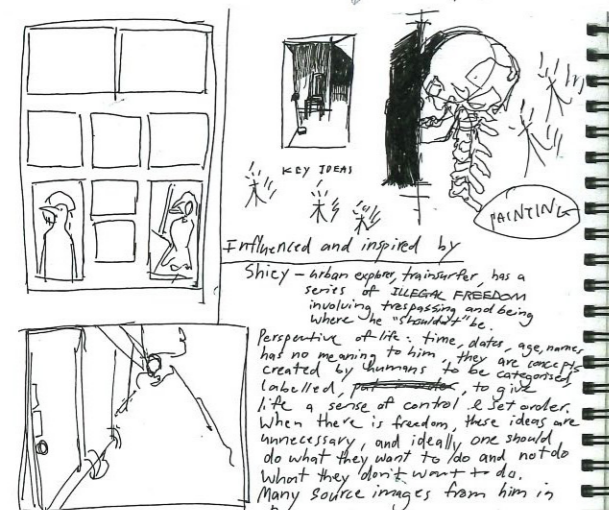 KEY IDEAS
PAINTING
Influenced and inspired by
Shiey - urban explorer, trainsurfer, has a
series of ILLEGAL FREEDOM
involving trespassing and being
where he "shouldn't" be.
Perspective of life: time, dates, age, names
has no meaning to him, they are concepts
created by humans to be categorised,
labelled, put in order, to give
life a sense of control & set order.
When there is freedom, these ideas are
unnecessary, and ideally one should
do what they want to do and not do
what they don't want to do.
Many source images from him in